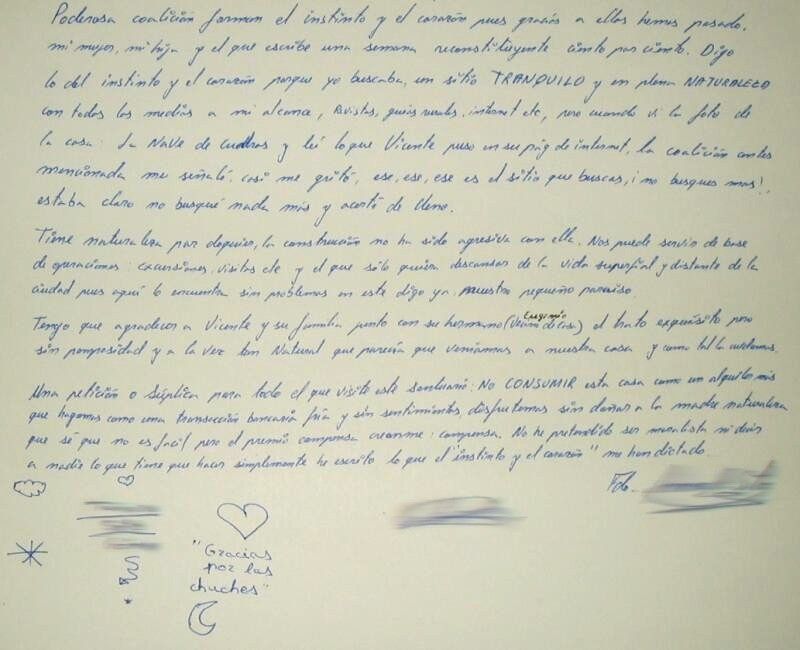 Poderosa coalición forman el instinto y el corazón pues gracias a ellos hemos pasado,
mi mujer, mi hija y el que escribe una semana reconstituyente ciento por ciento. Digo
lo del instinto y el corazón porque yo buscaba un sitio TRANQUILO y en plena NATURALEZA
con todos los medios a mi alcance, Revistas, guías rurales, internet etc, pero cuando vi la foto de
la casa: La Nave de cuadras y leí lo que Vicente puso en su pág de internet, la coalición antes
mencionada me señaló, casi me gritó, ese, ese, ese es el sitio que buscas, ¡no busques mas!,
estaba claro no busqué nada más y acerté de lleno.
Tiene naturaleza por doquier, la construcción no ha sido agresiva con ella. Nos puede servir de base
de operaciones: excursiones, visitas etc y el que sólo quiera descansar de la vida superfial y distante de la
ciudad pues aquí lo encuentra sin problemas en este digo ya nuestro pequeño paraiso.
Tengo que agradecer a Vicente y su familia junto con su hermano (Vecino de casa) Eugenio el trato exquisito pero
sin pomposidad y a la vez tan Natural que parecía que veníamos a nuestra casa y como tal la cuidamos.
Una petición o súplica para todo el que visite este santuario: NO CONSUMIR esta casa como un alquiler más
que hagamos como una transacción bancaria fría y sin sentimientos, disfrutemos sin dañar a la madre naturaleza
que sé que no es facil pero el premio compensa creanme: compensa. No he pretendido ser moralista ni decir
a nadie lo que tiene que hacer simplemente he escrito lo que el "instinto y el corazón" me han dictado
Fdo.
"Gracias
por las
chuches"